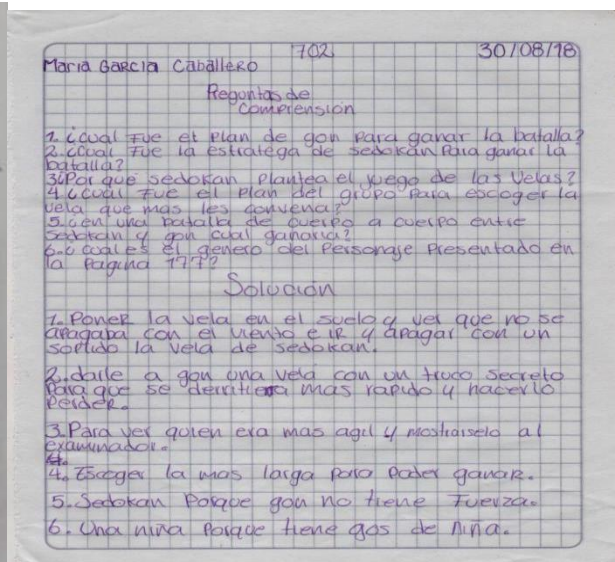 702 30/08/18
Maria Garcia Caballero
Preguntas de
Comprensión
1. ¿cual fue el plan de gon para ganar la batalla?
2. ¿cual fue la estratega de sedokan para ganar la
batalla?
3. ¿Por qué sedokan plantea el juego de las velas?
4. ¿cual fue el plan del grupo para escoger la
vela que mas les convenia?
5. ¿en una batalla de cuerpo a cuerpo entre
sedokan y gon cual ganaria?
6. ¿cual es el genero del Personaje Presentado en
la Pagina 177?
Solución
1. Poner la vela en el suelo y ver que no se
apagaba con el viento e ir y apagar con un
soplido la vela de sedokan.
2. darle a gon una vela con un truco secreto
Para que se derritiera mas rapido y hacerlo
Perder.
3. Para ver quien era mas agil y mostraiselo al
examinador.
4.
4. Escoger la mas larga para poder ganar.
5. Sedokan Porque gon no tiene Fuerza.
6. Una niña Porque tiene gos de niña.